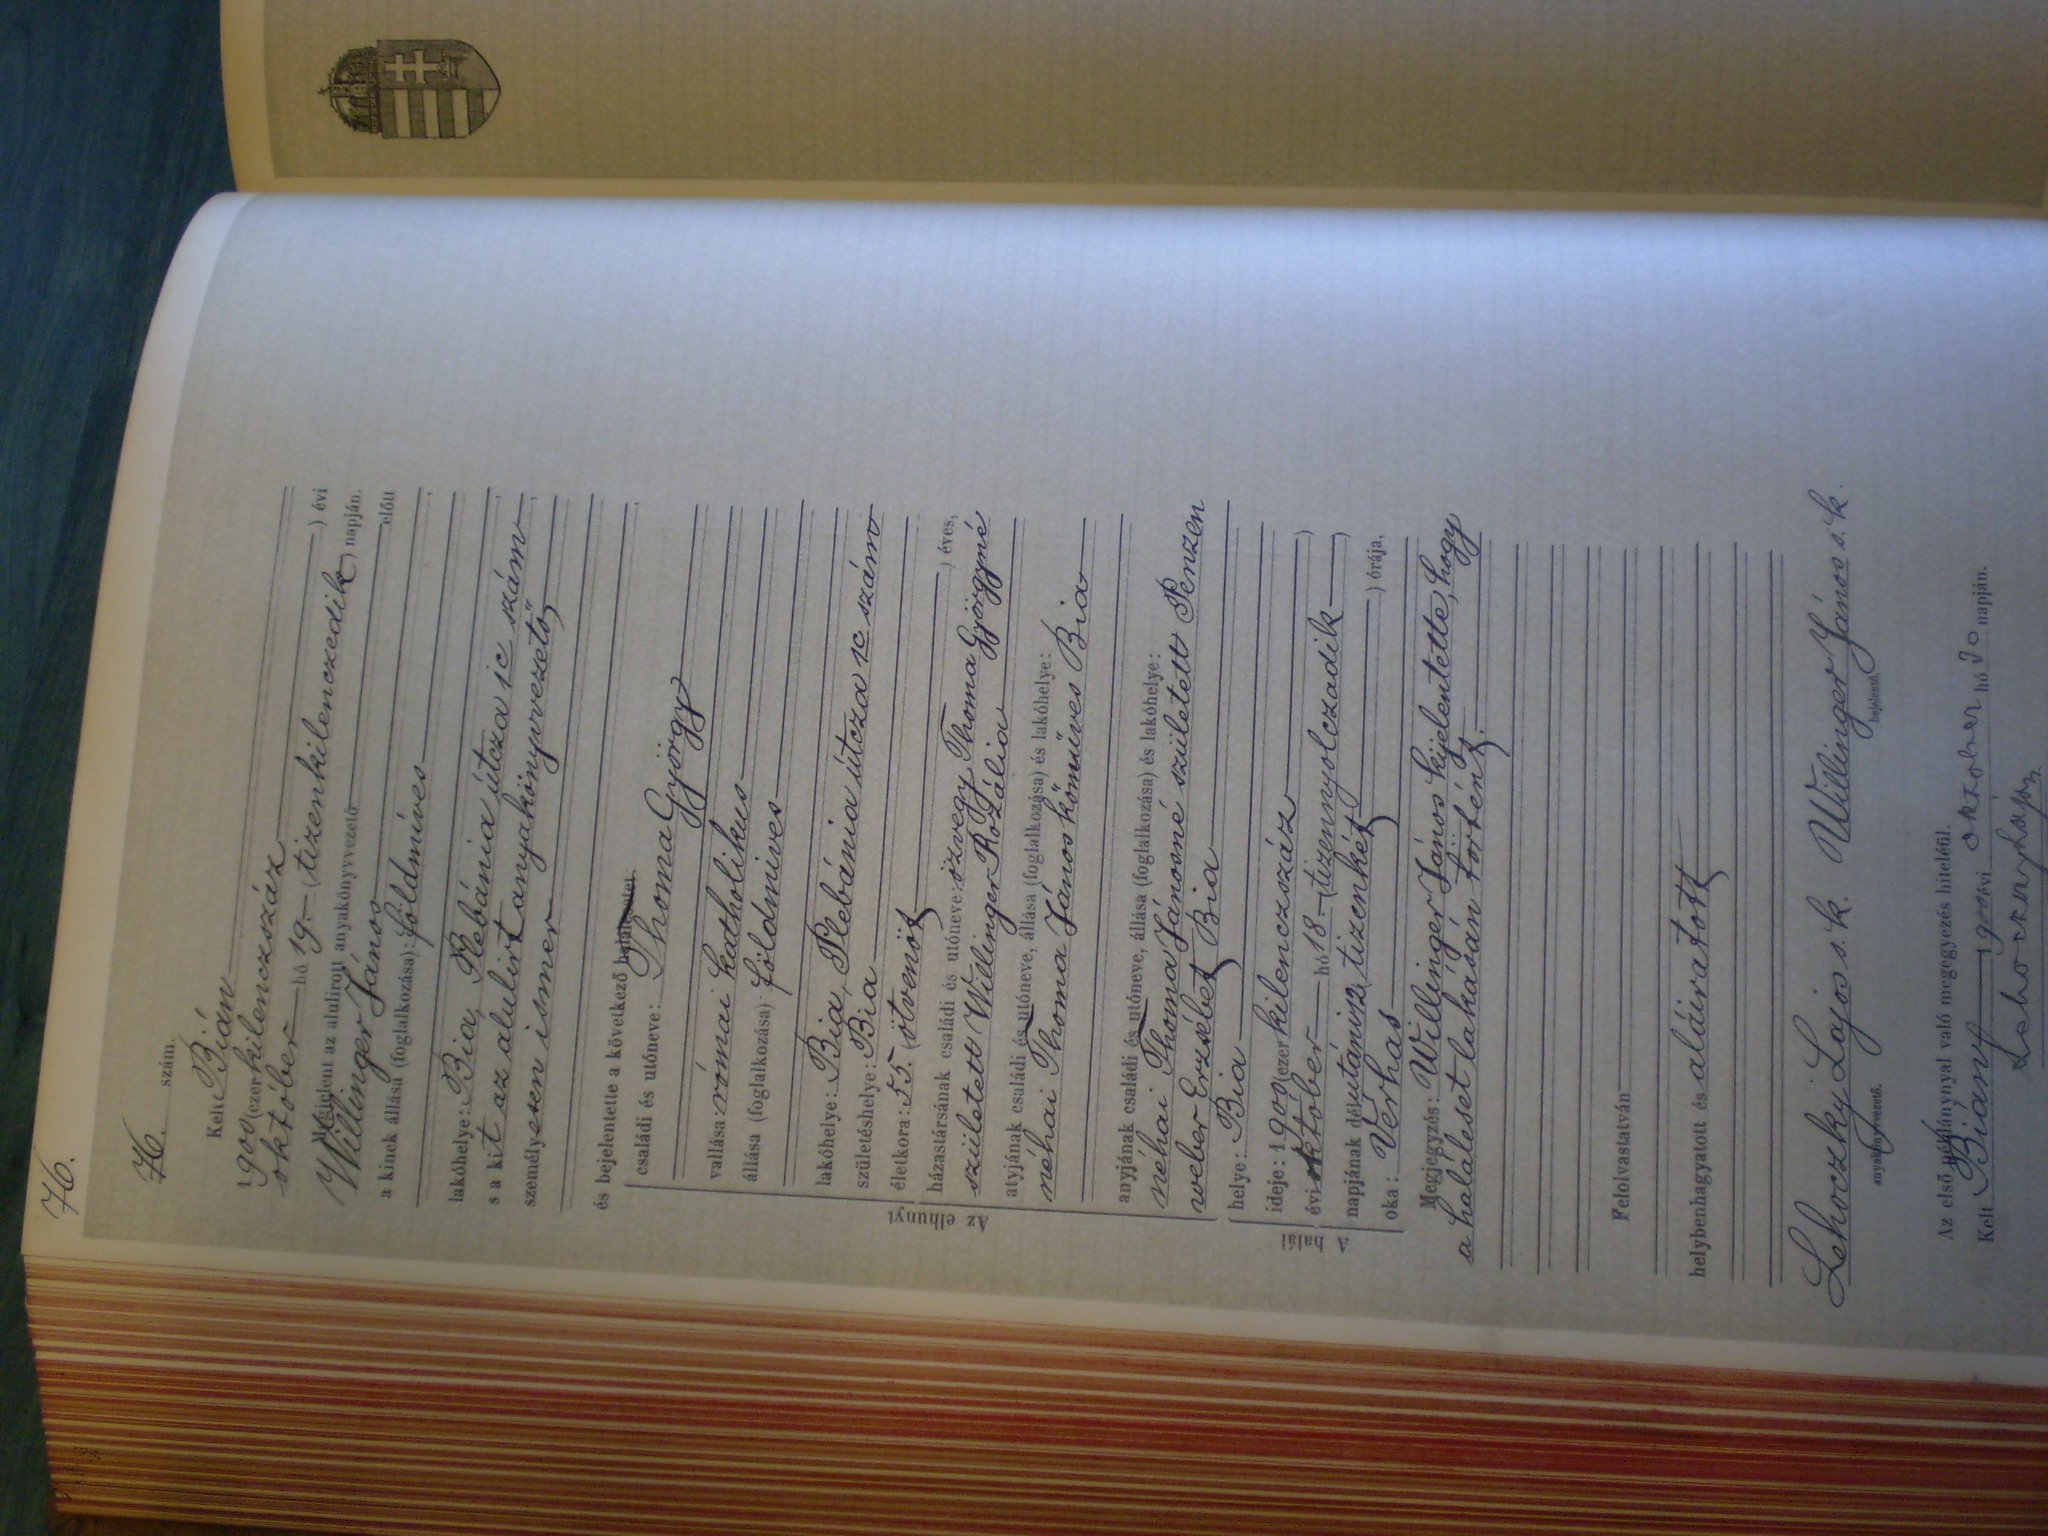 76.
76. szám.
Kelt Bián
1900 (ezerkilenczszáz) évi
október hó 19. (tizenkilenczedik) napján.
Megjelent az alulirott anyakönyvvezető előtt
Willinger János
a kinek állása (foglalkozása): földmíves
lakóhelye: Bia, Plebánia útcza 1c szám,
s a kit az alulirt anyakönyvvezető,
személyesen ismer
és bejelentette a következő halálesetet.
Az elhunyt
családi és utóneve: Thoma György
vallása római katholikus
állása (foglalkozása) földmives
lakóhelye: Bia, Plebánia útcza 1c szám
születéshelye: Bia
életkora: 55. (ötvenöt) éves,
házastársának családi és utóneve: özvegy Thoma Györgyné
született Willinger Rozália
atyjának családi és utóneve, állása (foglalkozása) és lakóhelye:
néhai Thoma János kőmüves Bia
anyjának családi és utóneve, állása (foglalkozása) és lakóhelye:
néhai Thoma Jánosné született Penzen
weber Erzsébet Bia
A halál
helye: Bia
ideje: 1900 (ezer kilenczszáz)
évi október hó 18. (tizennyolczadik)
napjának délutáni 12 (tizenkét) órája,
oka: Vérhas
Megjegyzés: Willinger János kijelentette, hogy
a haláleset lakásán történt.
Felolvastatván
helybenhagyatott és aláiratott
Lehoczky Lajos s. k. Willinger János s. k.
anyakönyvvezető. bejelentő.
Az első példánynyal való megegyezés hiteléül.
Kelt Bián 1900 évi október hó 20 napján.
Lehoczky Lajos